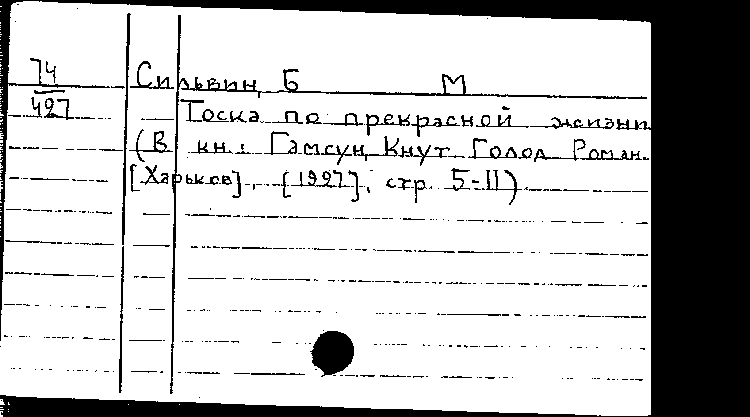 74
427
Сильвин, Б М
Тоска по прекрасной жизни
(В кн.: Гамсун, Кнут Голод Роман.
[Харьков], [1927], стр. 5-11)